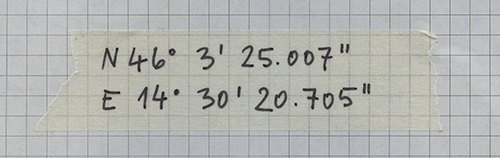 N 46° 3' 25.007"
E 14° 30' 20.705"